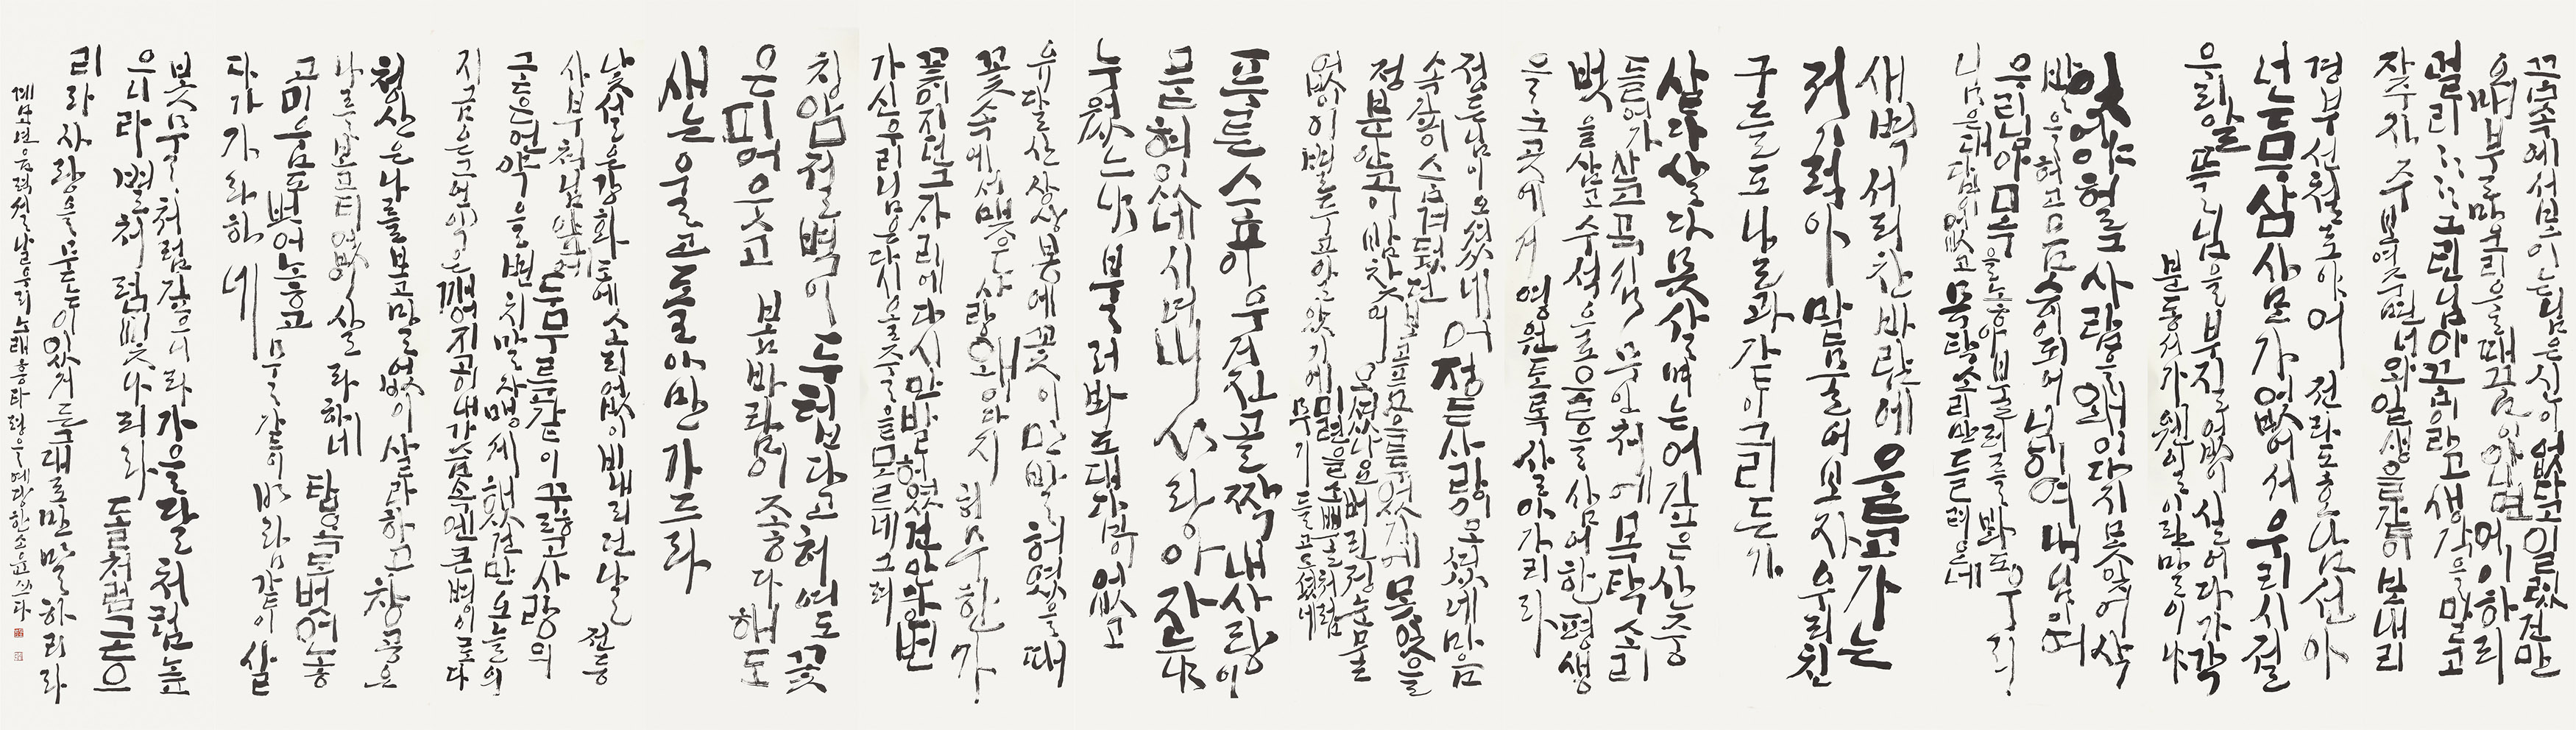 꿈속에서보이는님은신이없다고일렀건만
오매불망그린님을꿈이아니면어이하리
멀리멀리그린님아꿈이라고생각을말고
자주자주보여주면너와일생을같이보내리
경부선철도야이 전라도호남선아
너는 가없어서우리
알뜰님을부질없이실어다가각
분동서가웬일이란말이냐
잊어야헐그사람을왜이다지못잊어삭
발을허고 중이되어
우리님아목을놓아불러를봐도우리
님은대답없고목탁소리만들려온데
새벽서리찬바람에울고가는
저기럭아말물어보자우리친
구들도나날과같이그리든가
살다살다못살며는이깊은산중
들어가 무인처에목탁소리
벗을삼고수석으로 삼어한평생
을그곳에서영원토록살아가리라
정든님이오셨네어정든사랑이오셨네마음
속깊이스며뒀던 못잊을
정분안고이밤찾아오셨나요버린진눈물
없이
푸른숲우거진골짝내사랑이
묻혀있네 내사랑아자느냐
누웠느냐불러봐도대답이없고
유달산상상봉에꽃이만발허였을때
꽃속에서맺은사랑왜이다지 허무한가
꽃이지던그자리에다시만발허였건만한번
가신우리님은다시올줄을모르네그려
절벽이 다고허여도꽃
은피어웃고 봄바람이좋다해도
새는울고돌아만가드라
낯설은강화도에소리없이비내리던날 전등
사부처님앞에두무릎같이꿇고사랑의
언약을변치말자맹세했건만오늘의
지금은그언약은깨어지고이내가슴속엔큰병이로다
청산은나를보고말없이살라하고창공은
나를보고티없이살라하네 탐욕도벗어놓
고미움도벗어놓고 물같이바람같이살
다가가라하네
못물처럼깊으니라가을달처럼높
으니라별처럼빛나리라돌처럼굳으
리라사랑을묻는이있거든그대로만말하리라
계묘년음력설날우리노래흥타령을예랑한소윤쓰다